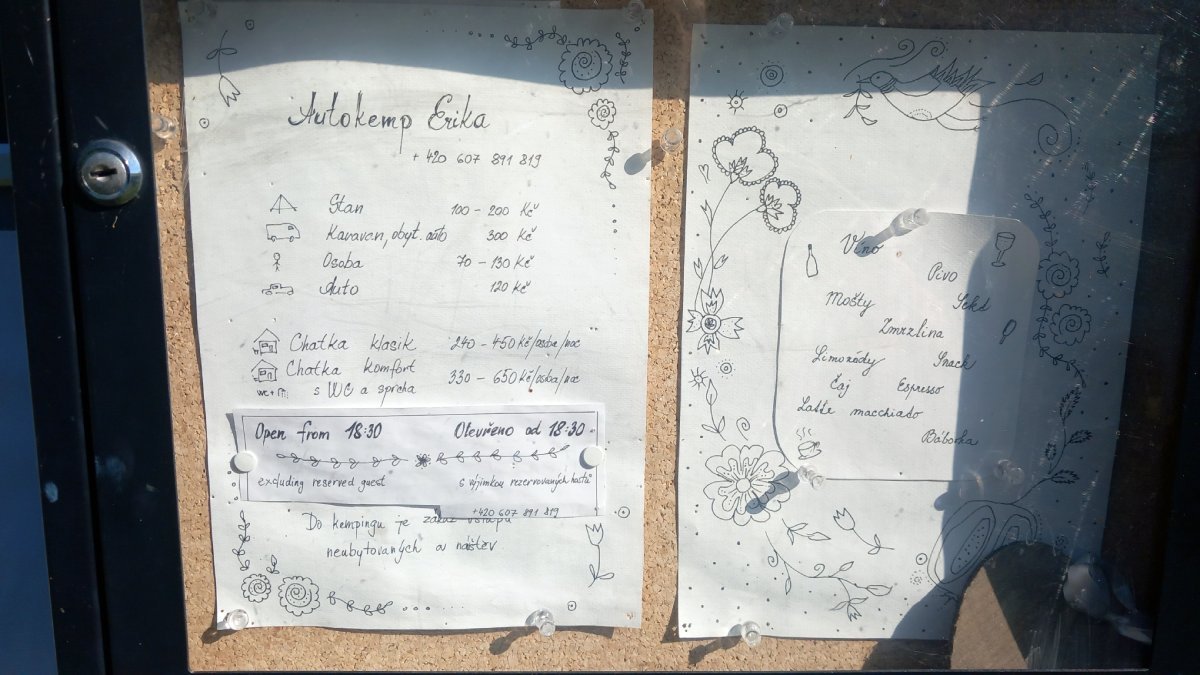 Autokemp Erika
+420 607 891 819
Stan 100 - 200 Kč
Karavan, obyt. auto 300 Kč
Osoba 70 - 130 Kč
Auto 120 Kč
Chatka klasik 240 - 450 Kč/osoba/noc
Chatka komfort
s WC a sprcha 330 - 650 Kč/osoba/noc
WC +
Open from 18:30 Otevřeno od 18:30
excluding reserved guest s výjimkou rezervovaných hostů
+420 607 891 819
Do kempingu je zákaz vstupu
neubytovaných a návštěv
Víno
Pivo
Mošty Sekt
Zmrzlina
Limonády Snack
Čaj Espresso
Latte macchiato
Bábovka